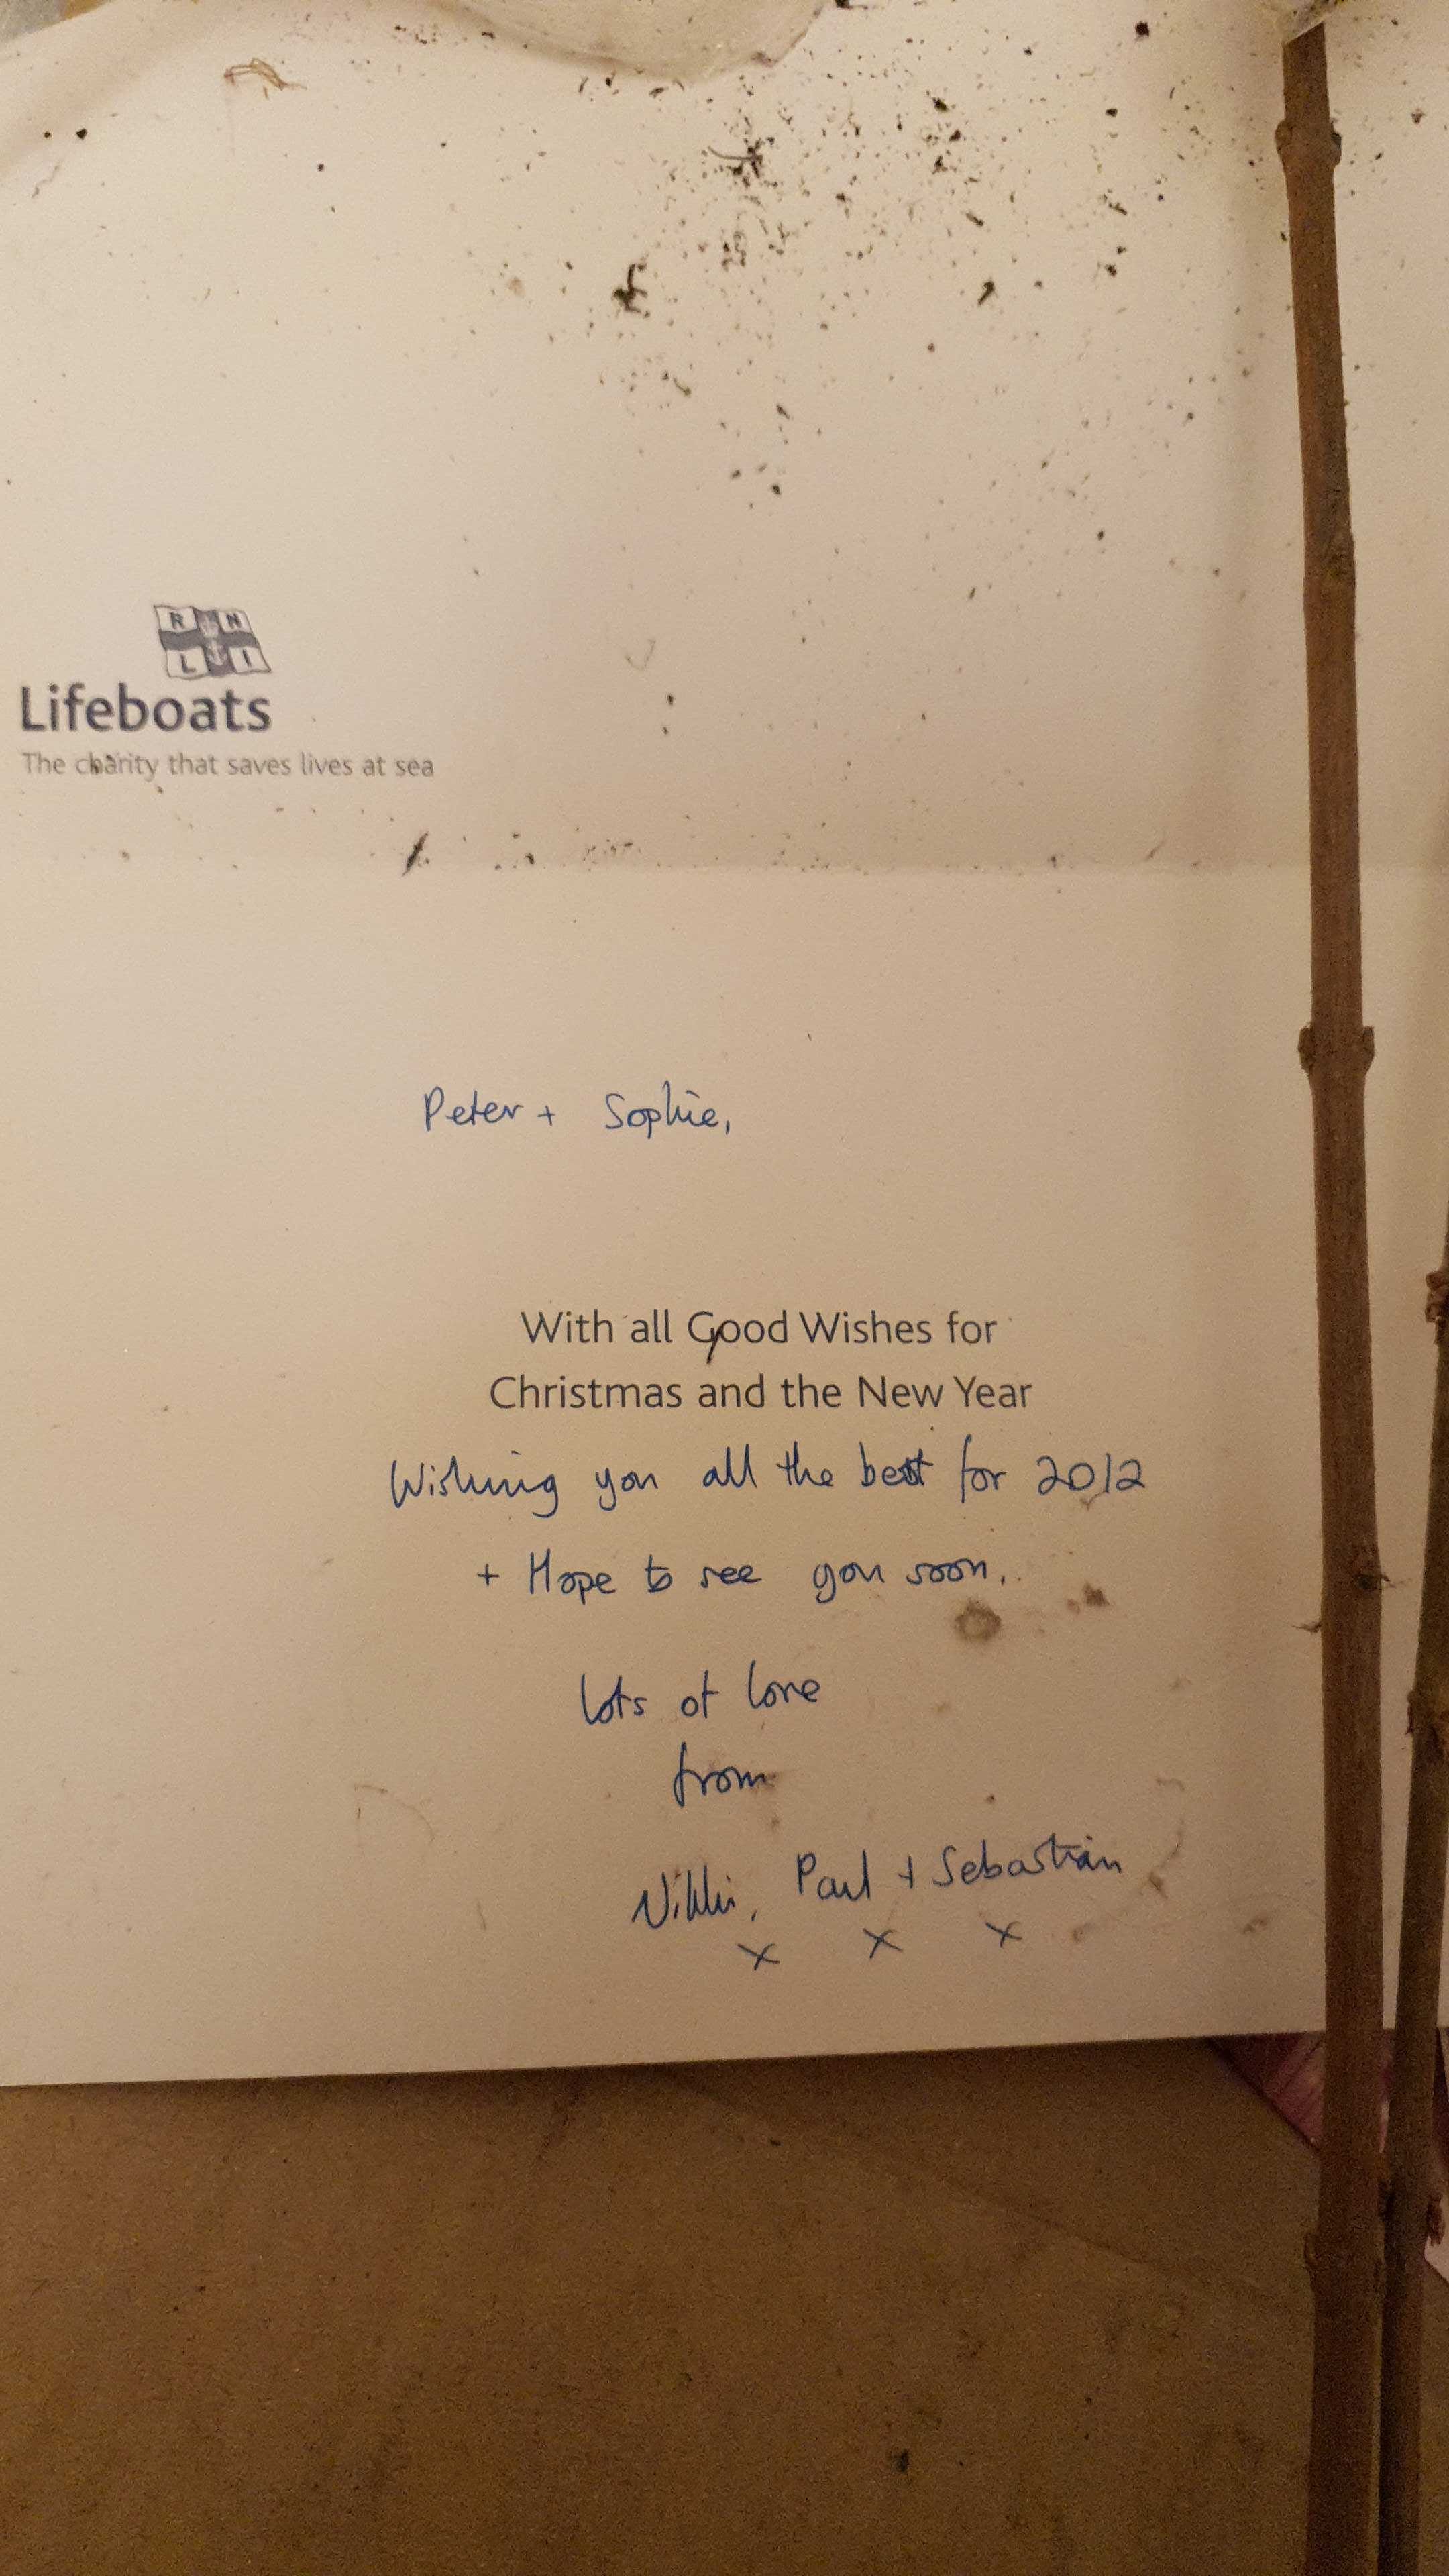 R N
L I
Lifeboats
The charity that saves lives at sea
Peter + Sophie,
With all Good Wishes for
Christmas and the New Year
Wishing you all the best for 2012
+ Hope to see you soon.
lots of love
from
Nikki, Paul + Sebastian
x x x